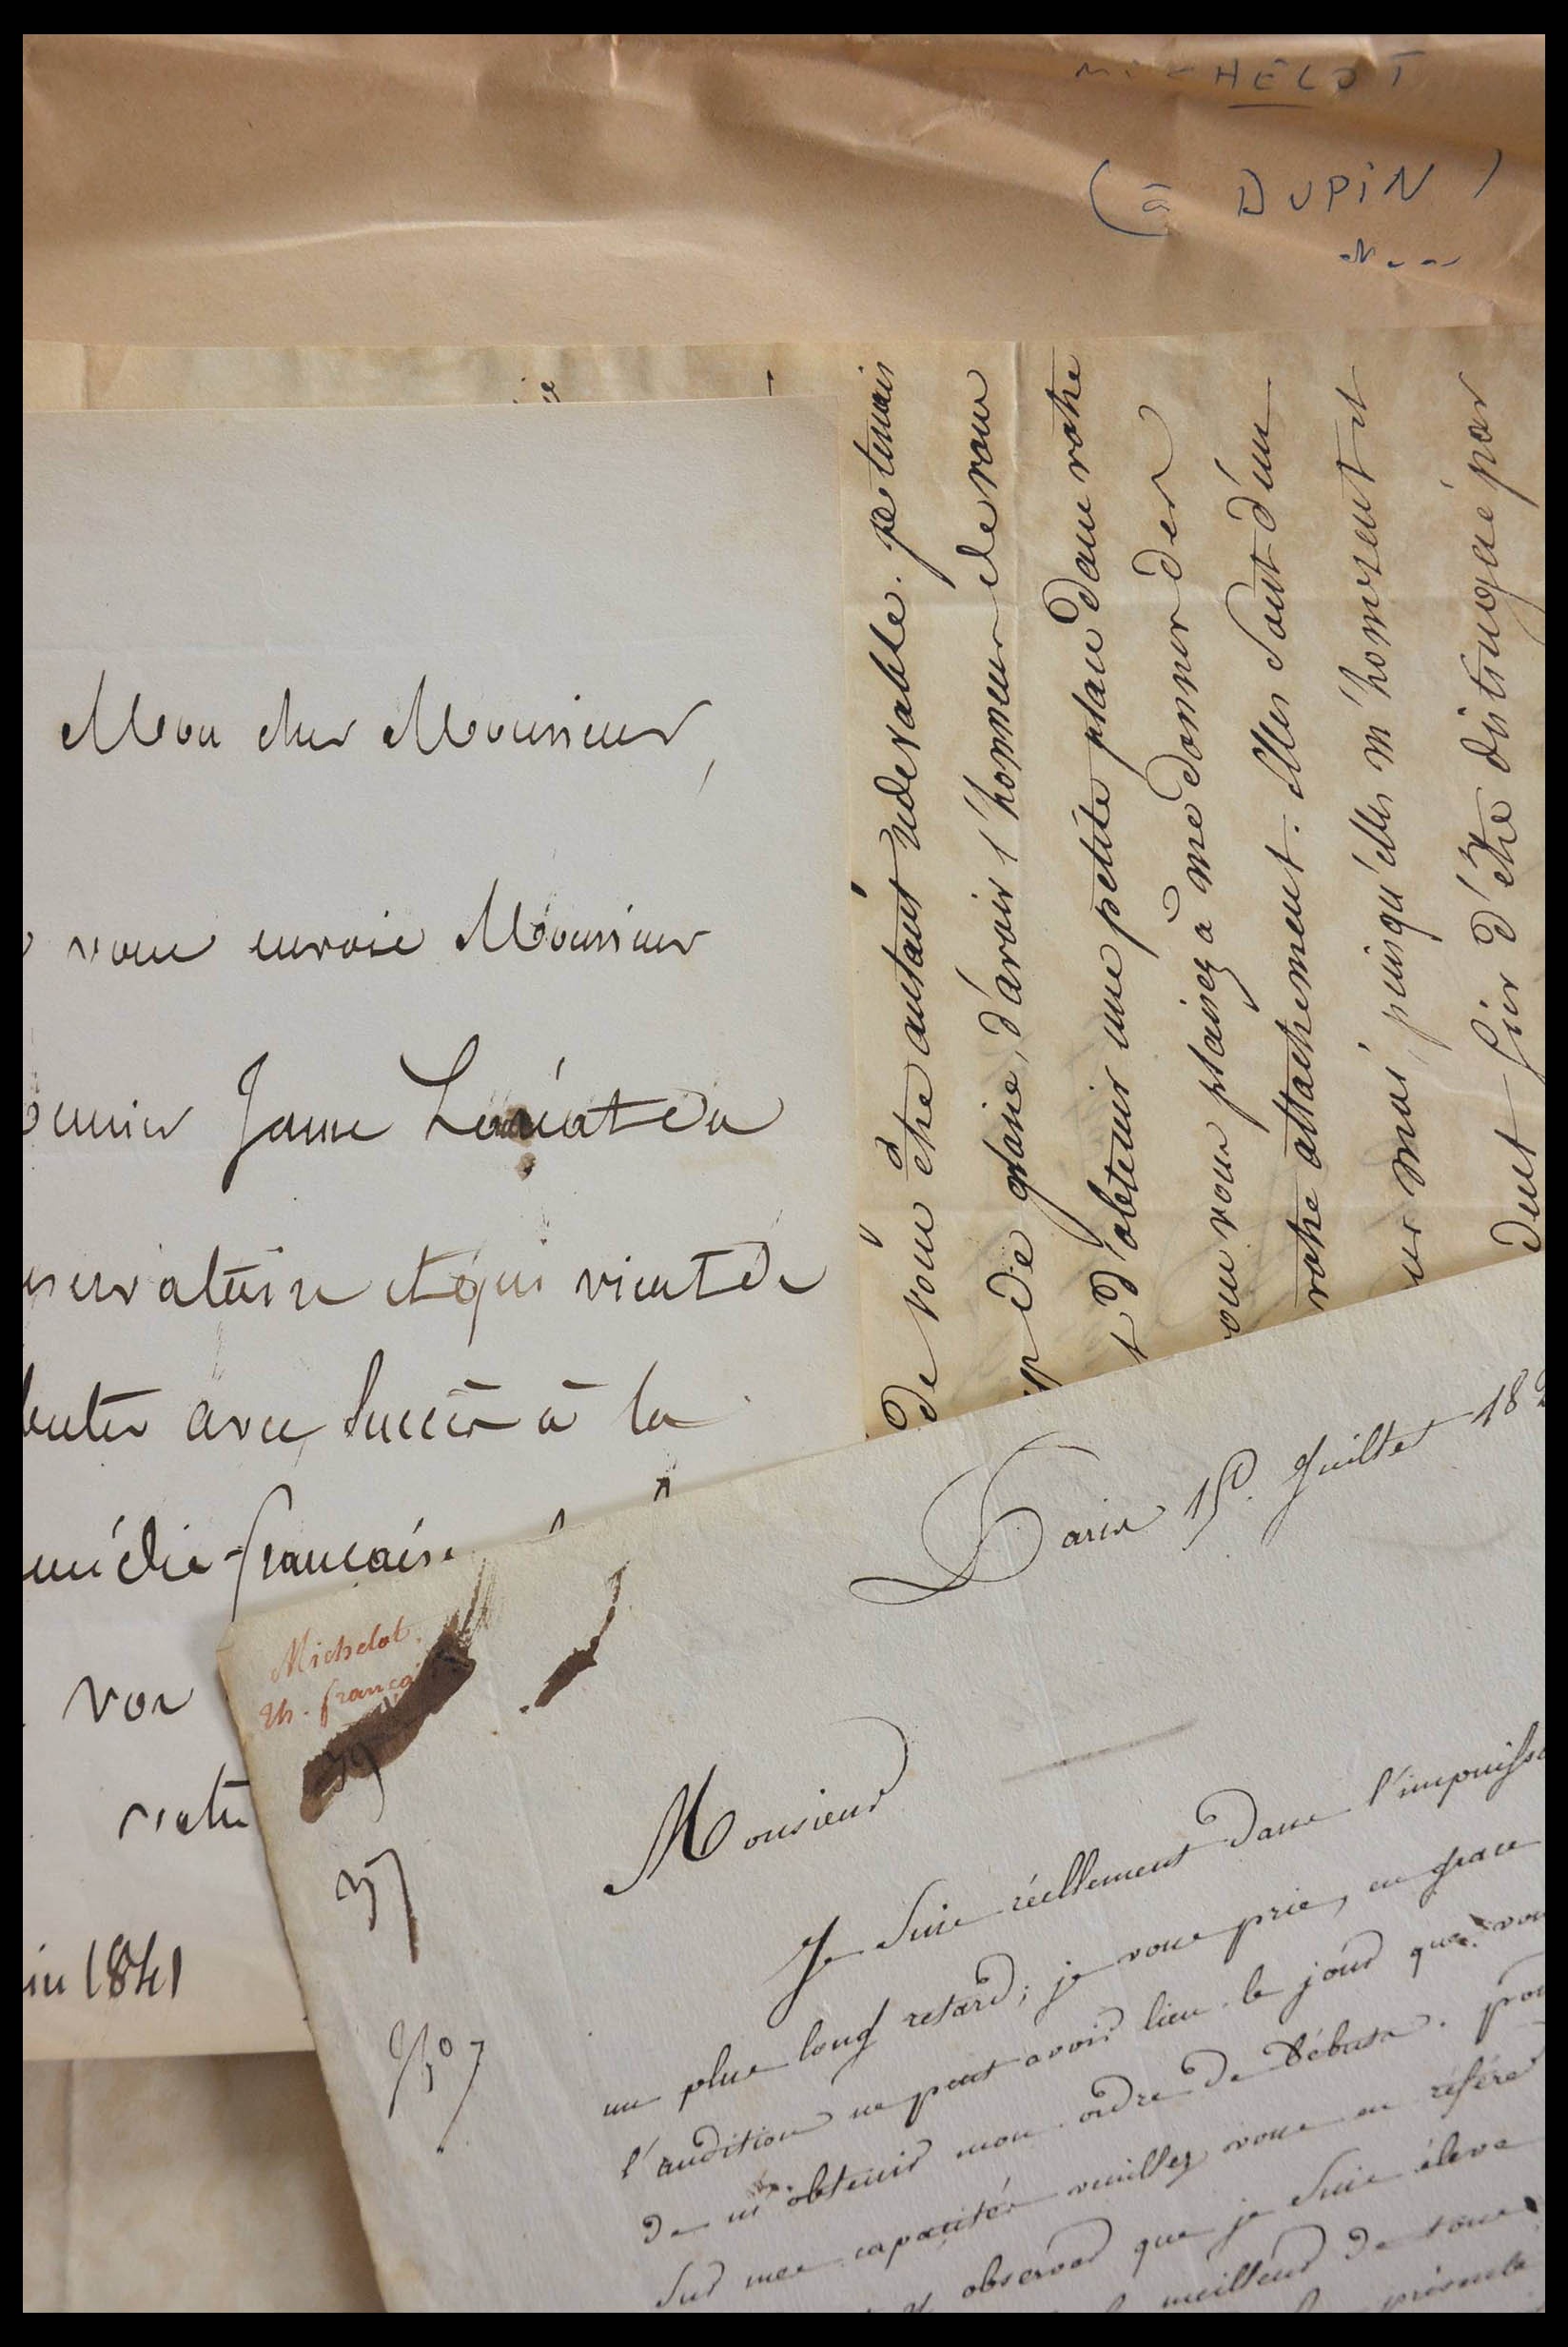 MICHELOT
(à DUPIN)
Mon cher Monsieur,
vous envoie Monsieur
Janne Lauréat du
servatoire et qui vient de
buter avec succès à la
médie-française
vos
in 1841
de vous être autant redevable. je tenais
de gloire, d'avoir l'honneur de vous
t d'obtenir une petite place dans votre
ous vous plaisez à me donner des
votre attachement. Elles sont d'un
ur moi, puisqu'elles m'honorent et
dent fier d'être distingué par
Michelot.
th. françai
39
37
Paris 15 Juillet 18
Monsieur
Je suis réellement dans l'impuissa
un plus long retard; je vous prie, en grace
l'audition ne peut avoir lieu le jour que vou
de m'obtenir mon ordre de débuts. pou
sur mes capacités veuillez vous en référer
observer que je suis élève
meilleur de tous
présente